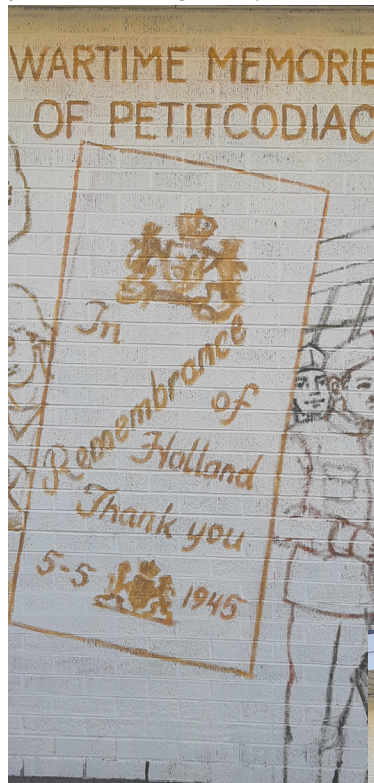 WARTIME MEMORIE
OF PETITCODIAC
In
Remembrance
of
Holland
Thank you
5-5 1945